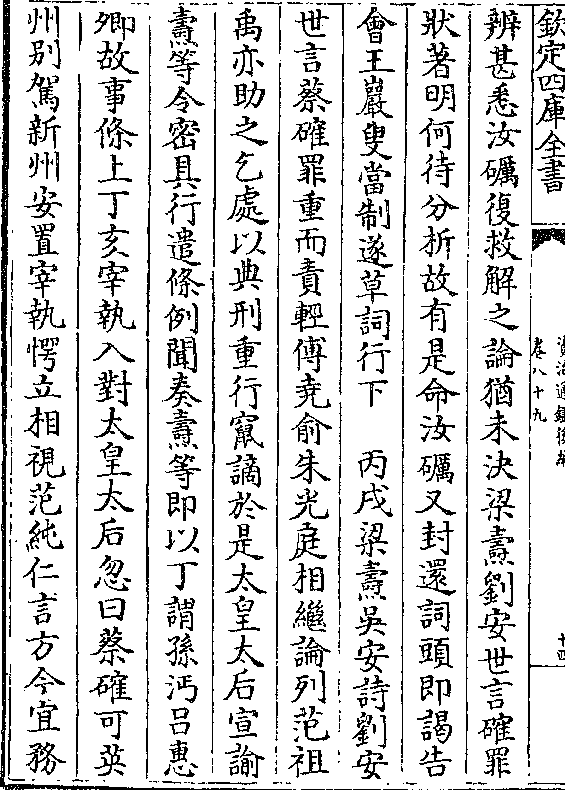 欽定四庫全書
資治通鑑後編
卷八十九
十四
辨甚悉汝礪復救解之論猶未決梁燾劉安世言確罪
狀著明何待分析故有是命汝礪又封還詞頭即謁告
會王巖叟當制遂草詞行下　丙戌梁燾吳安詩劉安
世言蔡確罪重而責輕傅堯俞朱光庭相繼論列范祖
禹亦助之乞處以典刑重行竄謫於是太皇太后宣諭
燾等令密具行遣條例聞奏燾等即以丁謂孫沔吕惠
卿故事條上丁亥宰執入對太皇太后忽曰蔡確可英
州别駕新州安置宰執愕立相視范純仁言方今宜務